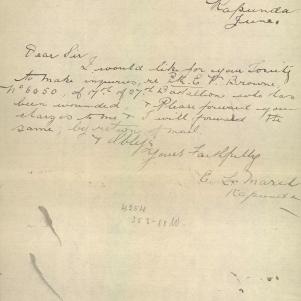 Kapunda
June.
Dear Sir,
I would like for your Society
to make inquries, re Pte. E. P. Browne,
No 6050, of 17th of 27th Battallion who has
been wounded. & Please forward your
charges to me & I will forward the
same, by return of mail.
& oblige
Yours Faithfully
C. L. Marsh
Kapunda
4254